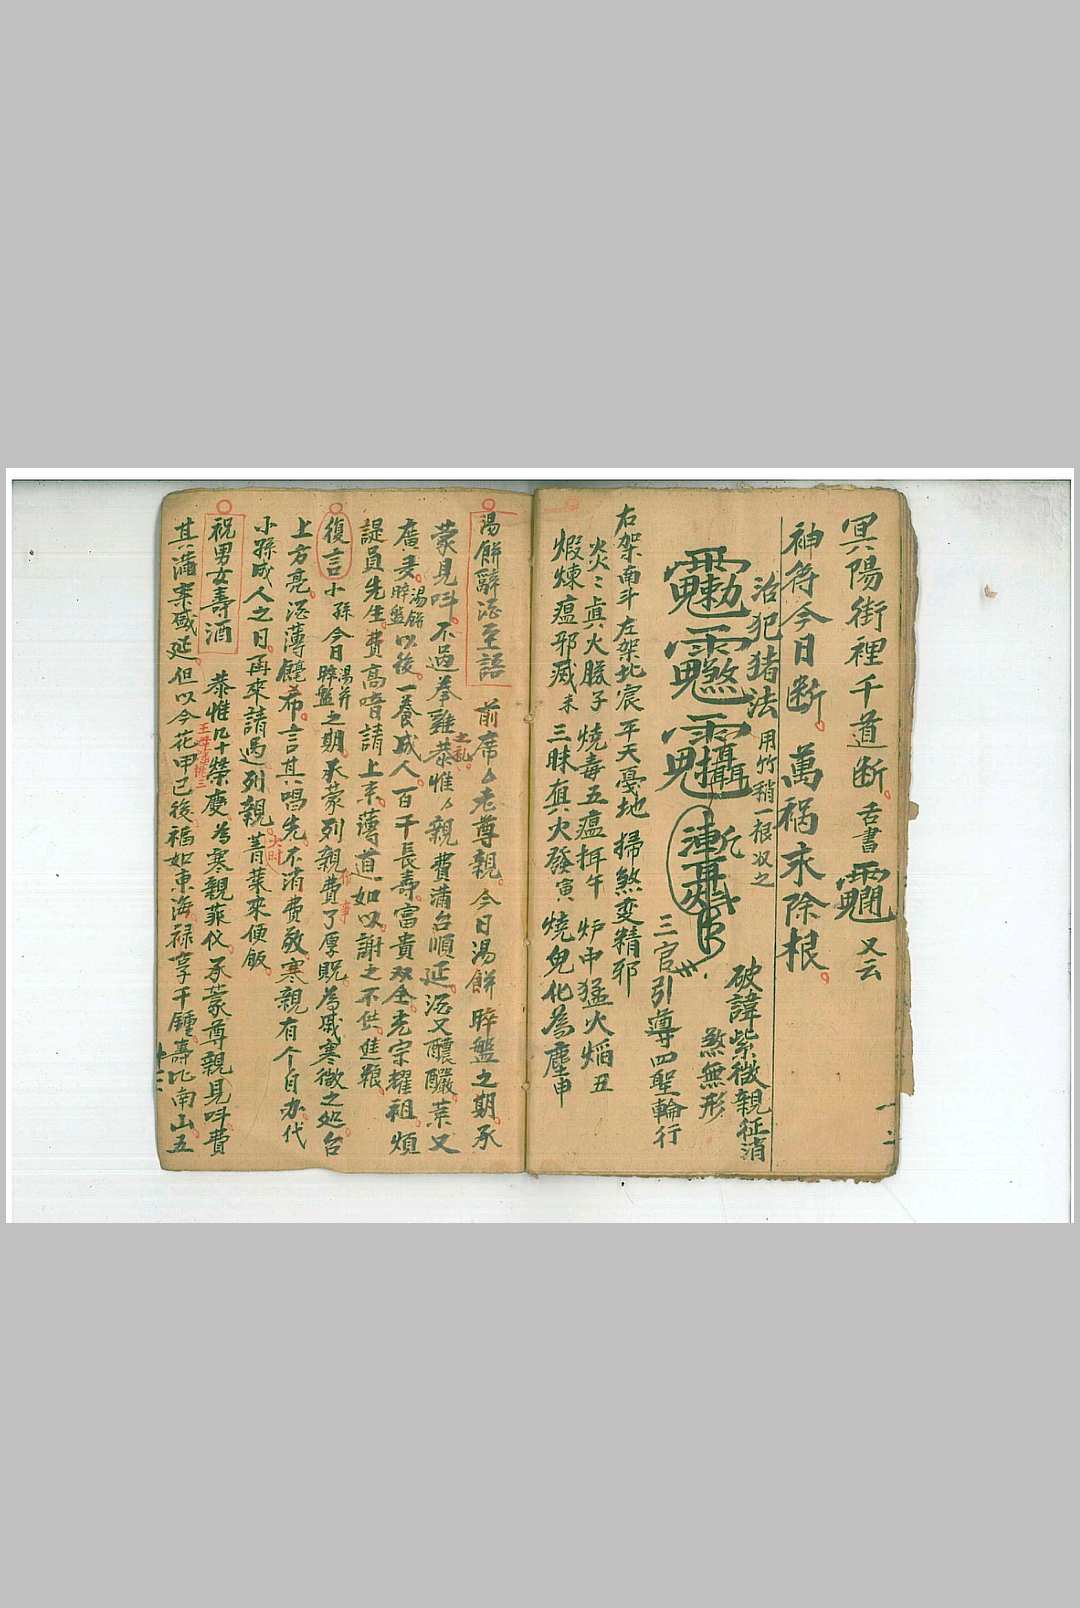 冥陽街裡千道断。舌書 又云
神符今日断。萬祸永除根。
治犯猪法 用竹稍一根収之
破諱紫微親征消
煞無形
三官引尊四聖輪行
右架南斗左架北宸 平天憂地 掃煞变精邪
炎〻真火勝子 燒毒五瘟拝午 炉中猛火焰丑
煅煉瘟邪滅未 三昧真火發寅 燒鬼化為塵申
湯餅辭酒至語 前席〻老尊親。今日湯餅 晬盤之期。承
蒙見呌。不過拳雞之私。恭惟〻親費滿台順延。酒又醲釅。菜又
廣麦。湯餅晬盤以後。一養成人。百千長壽。富貴双全。光宗耀祖。煩
諟員先生。費高音請上来。薄道如以謝之不供。進粮。
復言 小孫今日湯并晬盤之期。承蒙列親費了厚貺。為戚寒微之処。台
上方亮。酒薄餚希。言其唱先。不消費敬。寒親有个自办。代
小孫成人之日。再來請馬过列親。菁菜來便飯。
祝男女壽酒 恭惟几十榮慶。為寒親菲代。承蒙尊親見呌費
王母事桃三
其滿案盛延。但以今花甲已後。福如東海。禄享千鍾。壽比南山。五
十二